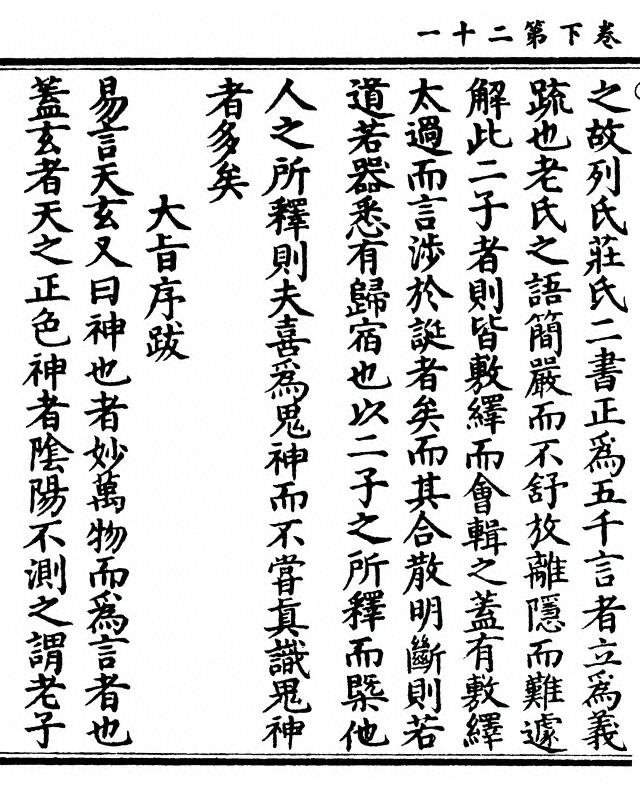 卷下第二十一
之故列氏莊氏二書正爲五千言者立爲義
䟽也老氏之語簡嚴而不舒放離隱而難遽
解此二子者則皆敷繹而會輯之蓋有敷繹
太過而言涉於誕者矣而其合散明斷則若
道若器悉有歸宿也以二子之所釋而槩他
人之所釋則夫喜爲鬼神而不嘗真識鬼神
者多矣
大旨序跋
易言天玄又曰神也者妙萬物而爲言者也
蓋玄者天之正色神者陰陽不測之謂老子